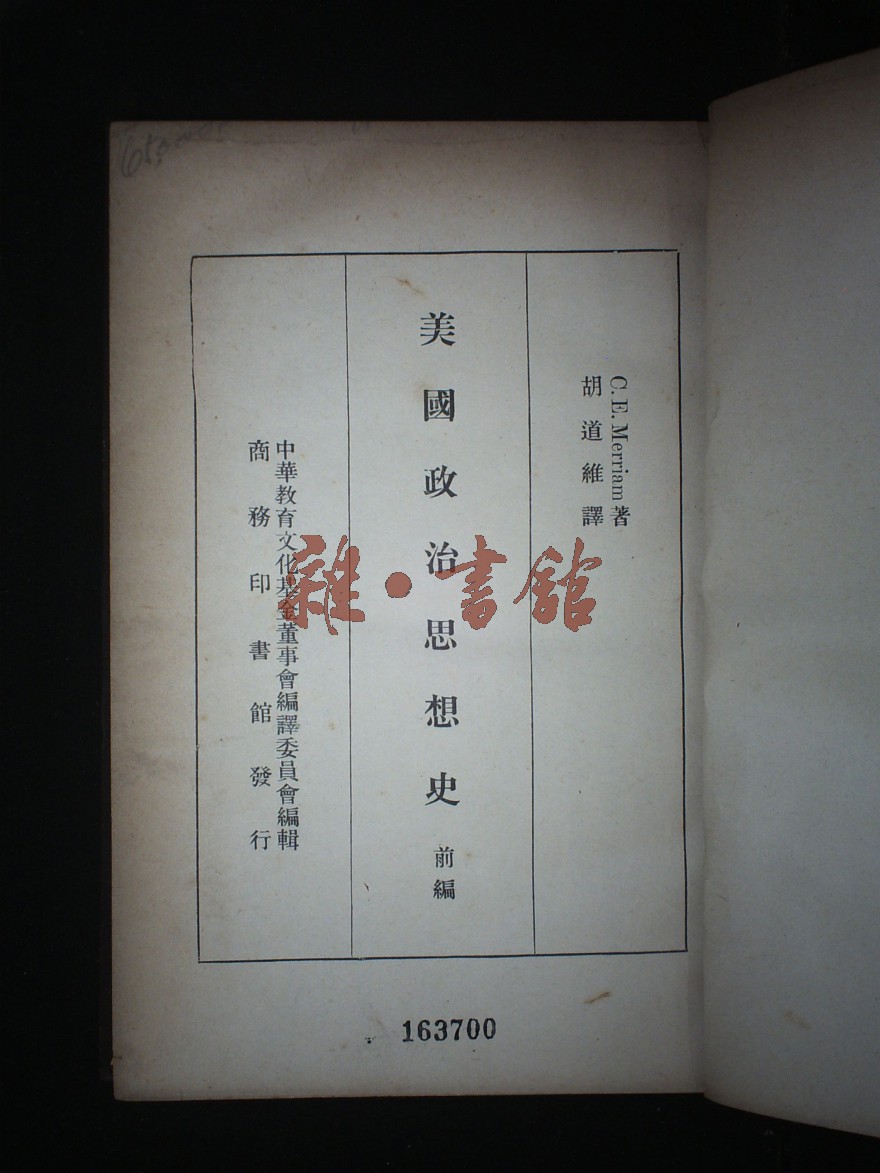 C. E. Merriam 著
胡道維譯
美國政治思想史 前編
中華教育文化基金董事會編譯委員會編輯
商務印書館發行
163700
雜·書館